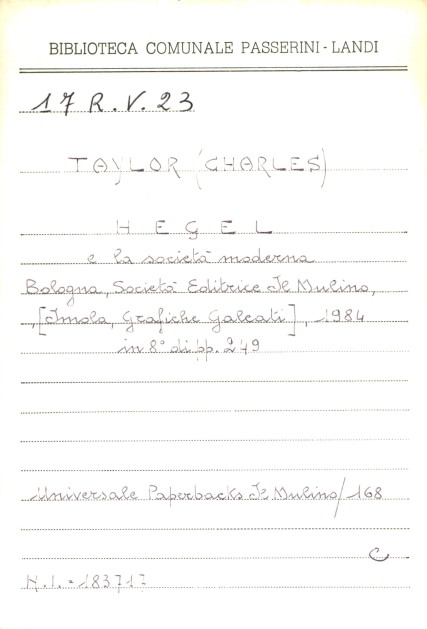 BIBLIOTECA COMUNALE PASSERINI - LANDI
17 R. V. 23
TAYLOR (CHARLES)
HEGEL
e la società moderna
Bologna, Società Editrice Il Mulino,
, [Imola, Grafiche Galeati], 1984
in 8° di pp. 249
Universale Paperbacks Il Mulino/168
C
N.I. = 183717